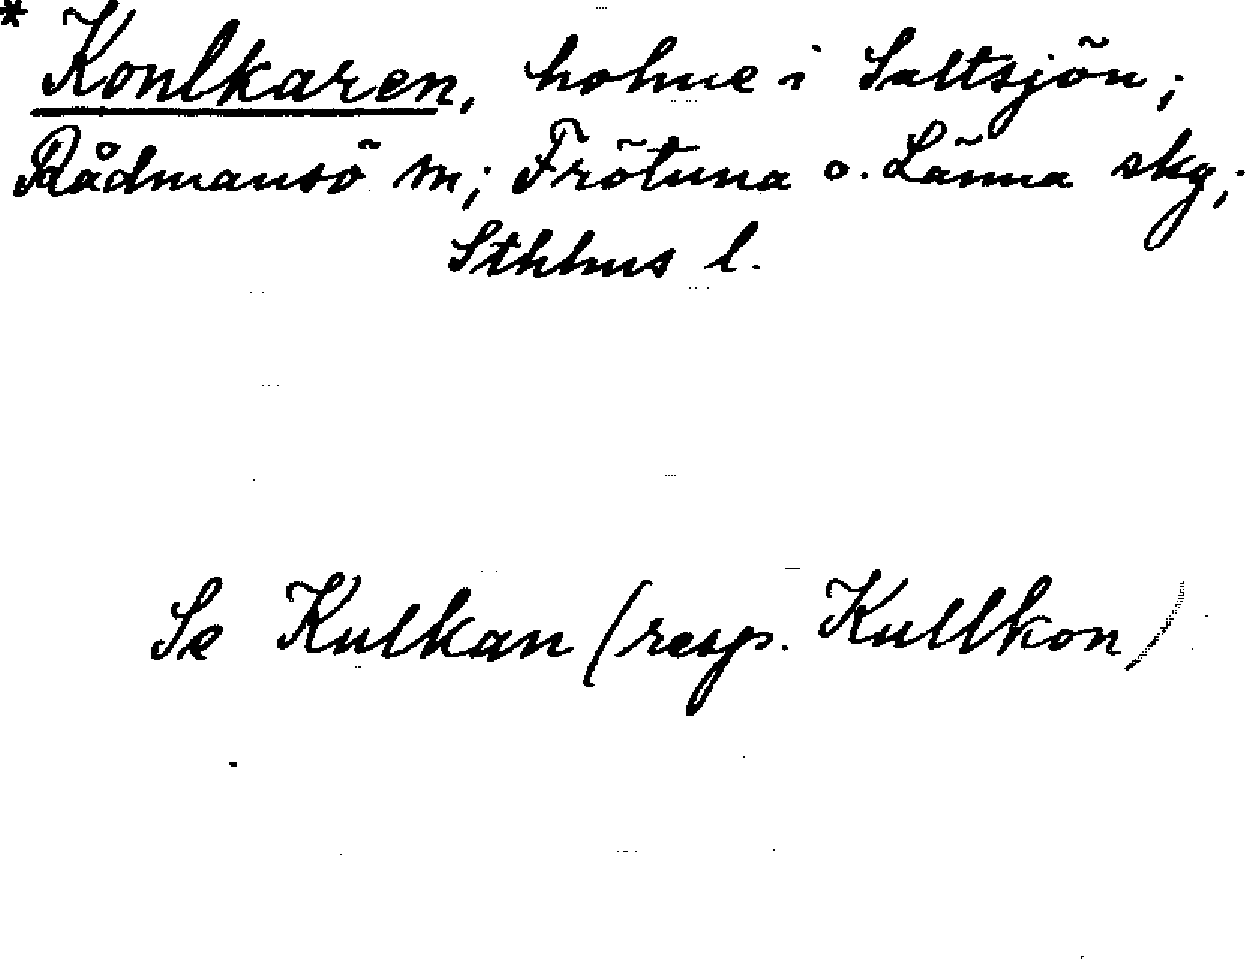 * Konlkaren, holme i Saltsjön;
Rådmansö sn; Frötuna o. Länna skg;
Sthlms l.
Se Kulkan (resp. Kullkon)